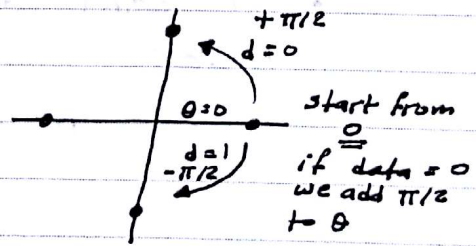 +π/2
d=0
θ=0
start from
0
d=1
-π/2
if data = 0
we add π/2
to θ